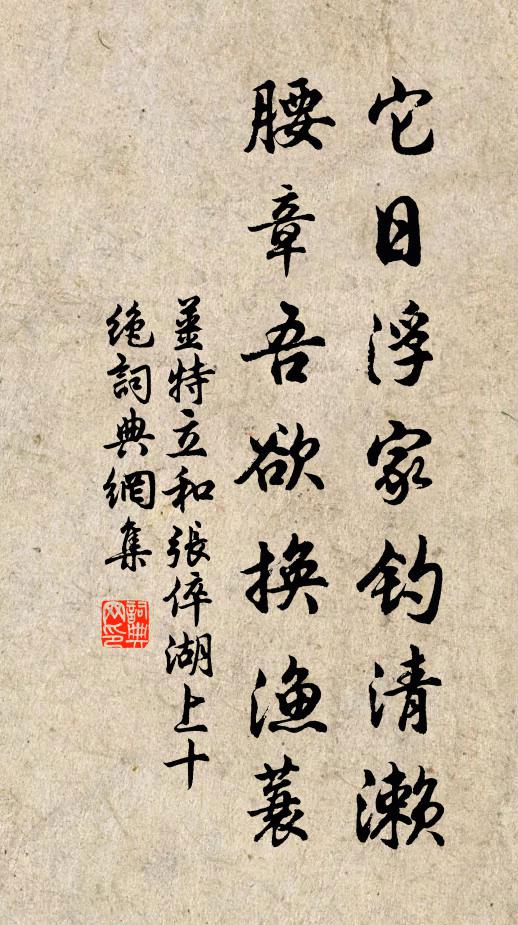 它日浮家钓清濑
腰章吾欲换渔蓑
薑特立和張倅湖上十
绝詞典網集
詞典网印